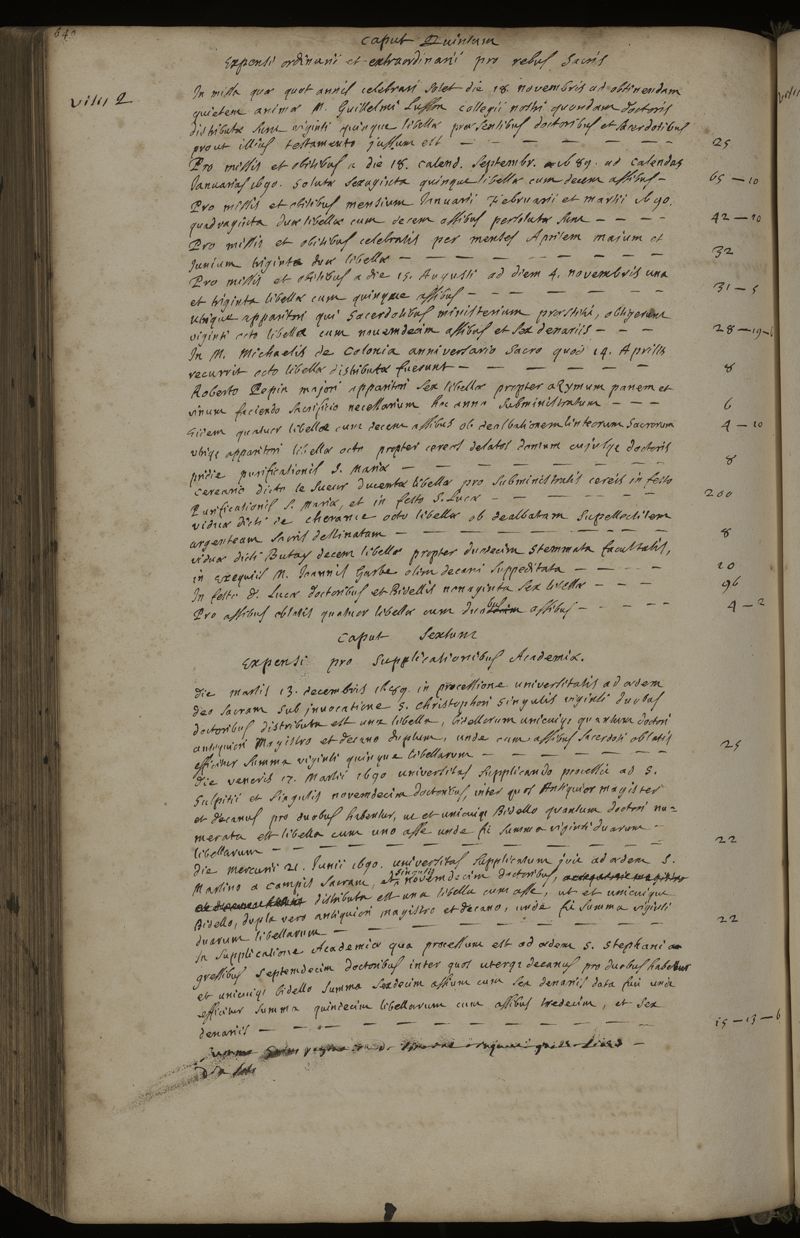 640
Caput Quintum
Expensi ordinarii et extraordinarii pro rebus sacris
In missa quæ quot annis celebrari solet die 18 novembris ad obtinendam
quietem animæ M. Guillelmi collegii nostri quondam doctoris
distributæ sunt viginti quinque libellæ præsentibus doctoribus et sacerdotibus
prout illius testamento jussum est — — — — — — 25
Pro missis et obitibus a die 18. calend. septembr. 1689. ad calendas
Januarias 1690. solutæ sexaginta quinque libellæ cum decem assibus — 65 — 10
Pro missis et obitibus mensium Januarii Februarii et martii 1690.
quadraginta duæ libellæ cum decem assibus persolutæ sunt — — — — 42 — 10
Pro missis et obitibus celebratis per menses Aprilem majum et
Junium triginta duæ libellæ — — — — — — — — 32
Pro missis et obitibus a die 15. Augusti ad diem 4. novembris una
et triginta libellæ cum quinque assibus — — — — — — 31 — 5
utrique apparitori qui sacerdotibus ministerium præstitit, obtigerunt
viginti octo libellæ cum novemdecim assibus et sex denariis — — — 28 — 19 — 6
In M. Michaelis de Colonia anniversario sacro quod 14. Aprilis
recurrit octo libellæ distributæ fuerunt — — — — — — 8
Roberto Pepin majori apparitori sex libellæ propter azymum panem et
vinum faciendo sacrificio necessarium hoc anno subministratum — — — 6
Eidem quatuor libellæ cum decem assibus ob dealbationem linteorum sacrorum 4 — 10
utrique apparitori libellæ octo propter cereos delatos domum cujusque doctoris
pridie purificationis S. Mariæ — — — — — — — 8
Cereario dicto le Sueur ducentæ libellæ pro subministratis cereis in festo
Purificationis S. Mariæ, et in festo S. Lucæ — — — — — — 200
viduæ dicti de cherance octo libellæ ob dealbatam supellectilem
argenteam sacris destinatam — — — — — — — 8
viduæ dicti Butay decem libellæ propter duodecim stemmata facultatis,
in exequiis M. Joannis Garbe olim decani suppeditata — — — — 10
In festo d. Lucæ doctoribus et Bidellis nonaginta sex libellæ — — — — 96
Pro assibus oblatis quatuor libellæ cum duobus assibus — — — — 4 — 2
Caput Sextum
Expensi pro supplicationibus Academiæ.
die martis 13. decembris 1689. in processione universitatis ad ædem
deo sacram sub invocatione S. Christophori singulis viginti duobus
doctoribus distributa est una libella, bidellorum unicuique quantum doctori
antiquiori Magistro et decano duplum, unde cum assibus sacerdoti oblatis
efficitur summa viginti quinque libellarum — — — — — — 25
die veneris 17. Martii 1690 universitas supplicando processit ad S.
Sulpitii et singulis novemdecim doctoribus, inter quos Antiquior magister
et decanus pro duobus habentur, ut et unicuique Bidello quantum doctori nu-
merata est libella cum uno asse unde fit summa viginti duarum
libellarum — — — — — — — — — 22
die mercurii 21. Junii 1690. universitas supplicatum ivit ad ædem S.
Martino a campis sacram, singulis novemdecim doctoribus,
distributa est una libella cum asse, ut et unicuique
Bidello, dupla vero antiquiori magistro et decano, unde fit summa viginti
duarum libellarum — — — — — — — — 22
In supplicatione Academiæ qua processum est ad ædem S. Stephani a
gressibus septemdecim doctoribus inter quos uterque decanus pro duobus habetur
et unicuique bidello summa sexdecim assium cum sex denariis data fuit unde
efficitur summa quindecim libellarum cum assibus tredecim, et sex
denariis — — — — — — — — — 15 — 13 — 6